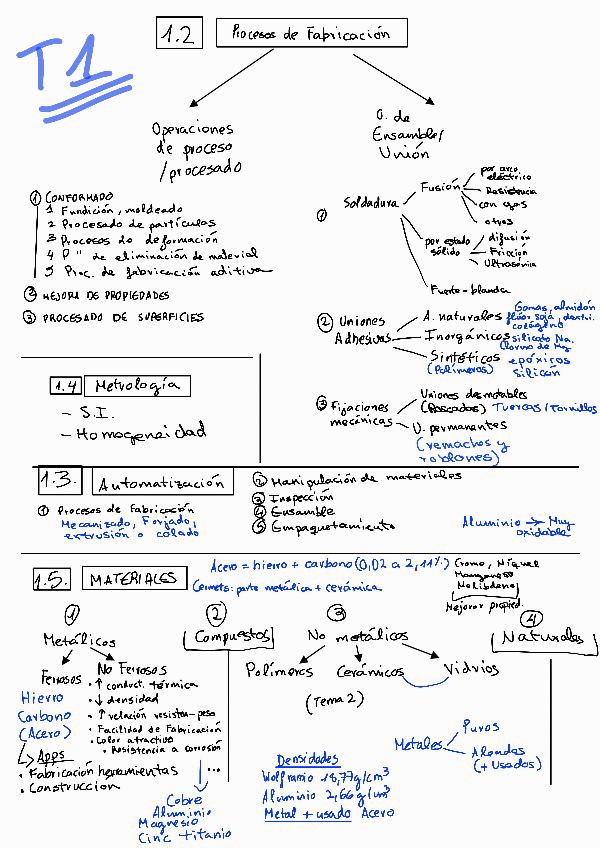 T1
1.2 Procesos de Fabricación
Operaciones
de proceso
/procesado
① CONFORMADO
1 Fundición, moldeado
2 Procesado de partículas
3 Procesos de deformación
4 P " de eliminación de material
5 Proc. de fabricación aditiva
② MEJORA DE PROPIEDADES
③ PROCESADO DE SUPERFICIES
O. de
Ensamble/
Unión
① Soldadura
Fusión
por arco
eléctrico
Resistencia
con gas
otros
por estado
sólido
difusión
Fricción
Ultrasónica
Fuerte-blanda
② Uniones
Adhesivas
A. naturales
Gomas, almidón
flúor soja, dextri.
colágeno
Inorgánicos
silicato Na.
Cloruro de Mg
Sintéticos
(Polímeros)
epóxicos
silicón
③ Fijaciones
mecánicas
Uniones desmotables
(Roscados) Tuercas/Tornillos
U. permanentes
(remaches y
roblones)
1.4 Metrología
- S.I.
- Homogeneidad
1.3. Automatización
① Procesos de Fabricación
Mecanizado, Forjado,
extrusión o colado
② Manipulación de materiales
③ Inspección
④ Ensamble
⑤ Empaquetamiento
Aluminio → Muy
oxidable
1.5. MATERIALES
Acero = hierro + carbono (0,02 a 2,11%)
Cromo, Níquel
Manganeso
Molibdeno
Mejorar propied.
Cermets: parte metálica + cerámica
①
Metálicos
Ferrosos
Hierro
Carbono
(Acero)
Apps
• Fabricación herramientas
• Construccion
No Ferrosos
• ↑ conduct. térmica
• ↓ densidad
• ↑ relación resisten-peso
• Facilidad de Fabricación
• Color atractivo
• Resistencia a corrosión
...
Cobre
Aluminio
Magnesio
Cinc titanio
②
Compuestos
③
No metálicos
Polímeros
Cerámicos
Vidrios
(Tema 2)
④
Naturales
Densidades
Wolframio 18,77g/cm³
Aluminio 2,66g/cm³
Metal + usado Acero
Metales
Puros
Aleados
(+ Usados)